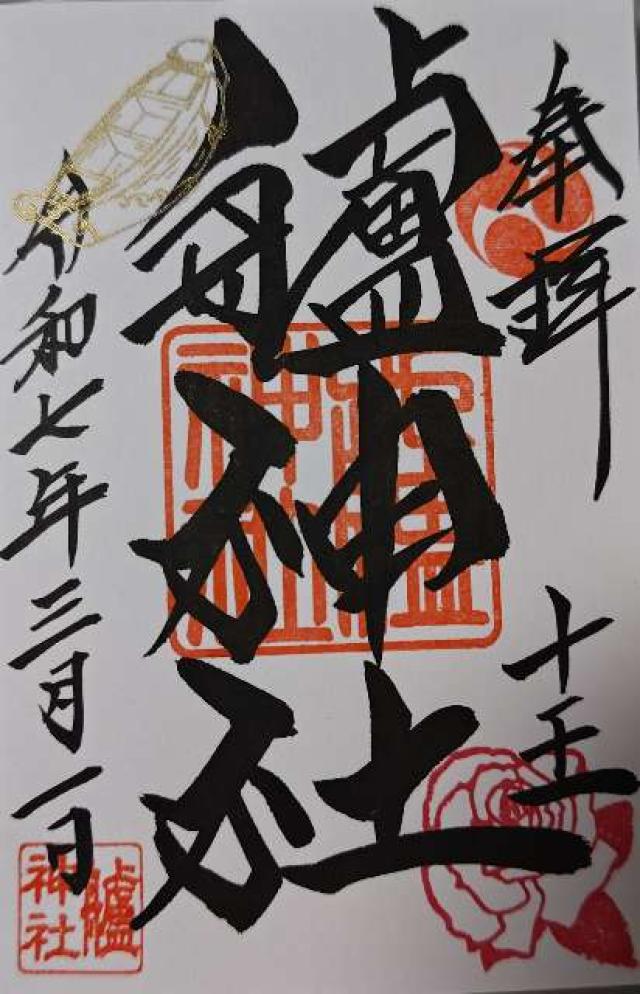 奉拝
十王
艫神社
令和七年三月一日
艫
神社